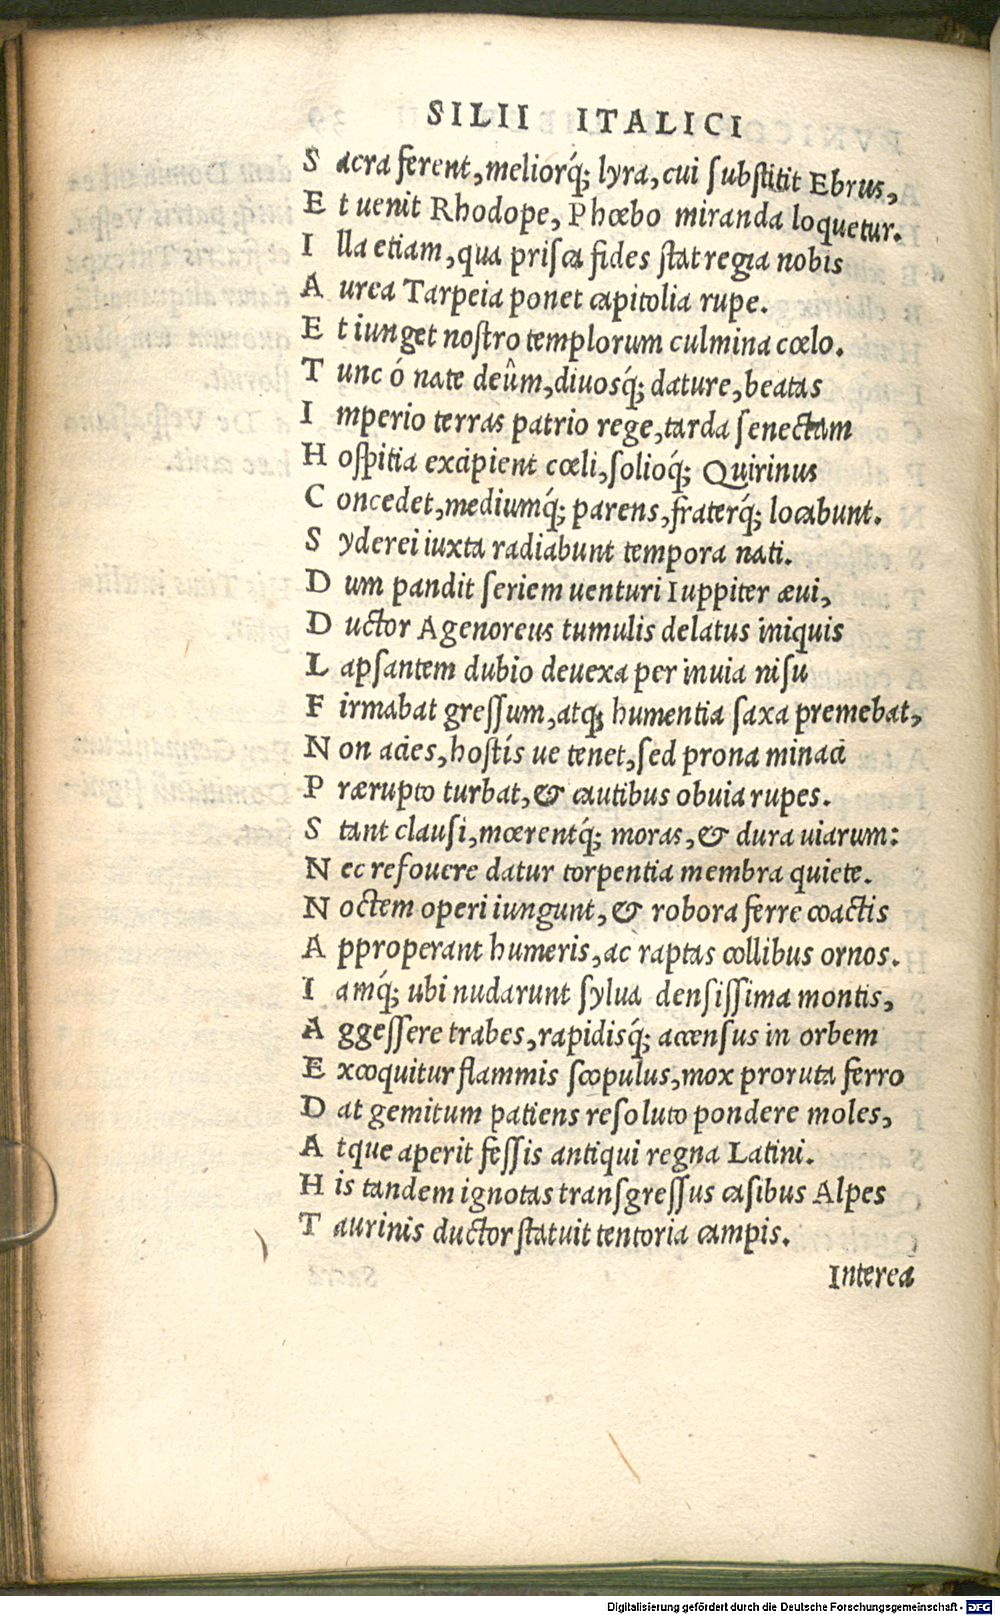 SILII ITALICI
S acra ferent, meliorq́; lyra, cui substitit Ebrus,
E t uenit Rhodope, Phœbo miranda loquetur.
I lla etiam, qua prisca fides stat regia nobis
A urea Tarpeia ponet capitolia rupe.
E t iunget nostro templorum culmina cœlo.
T unc ó nate deûm, diuosq́; dature, beatas
I mperio terras patrio rege, tarda senectam
H ospitia excipient cœli, solioq́; Quirinus
C oncedet, mediumq́; parens, fraterq́; locabunt.
S yderei iuxta radiabunt tempora nati.
D um pandit seriem uenturi Iuppiter æui,
D uctor Agenoreus tumulis delatus iniquis
L apsantem dubio deuexa per inuia nisu
F irmabat gressum, atq; humentia saxa premebat,
N on acies, hostís ue tenet, sed prona minaci
P rærupto turbat, & cautibus obuia rupes.
S tant clausi, mœrentq́; moras, & dura uiarum:
N ec refouere datur torpentia membra quiete.
N octem operi iungunt, & robora ferre coactis
A pproperant humeris, ac raptas collibus ornos.
I amq́; ubi nudarunt sylua densissima montis,
A ggessere trabes, rapidisq́; accensus in orbem
E xcoquitur flammis scopulus, mox proruta ferro
D at gemitum patiens resoluto pondere moles,
A tque aperit fessis antiqui regna Latini.
H is tandem ignotas transgressus casibus Alpes
T aurinis ductor statuit tentoria campis.
Interea
Digitalisierung gefördert durch die Deutsche Forschungsgemeinschaft - DFG